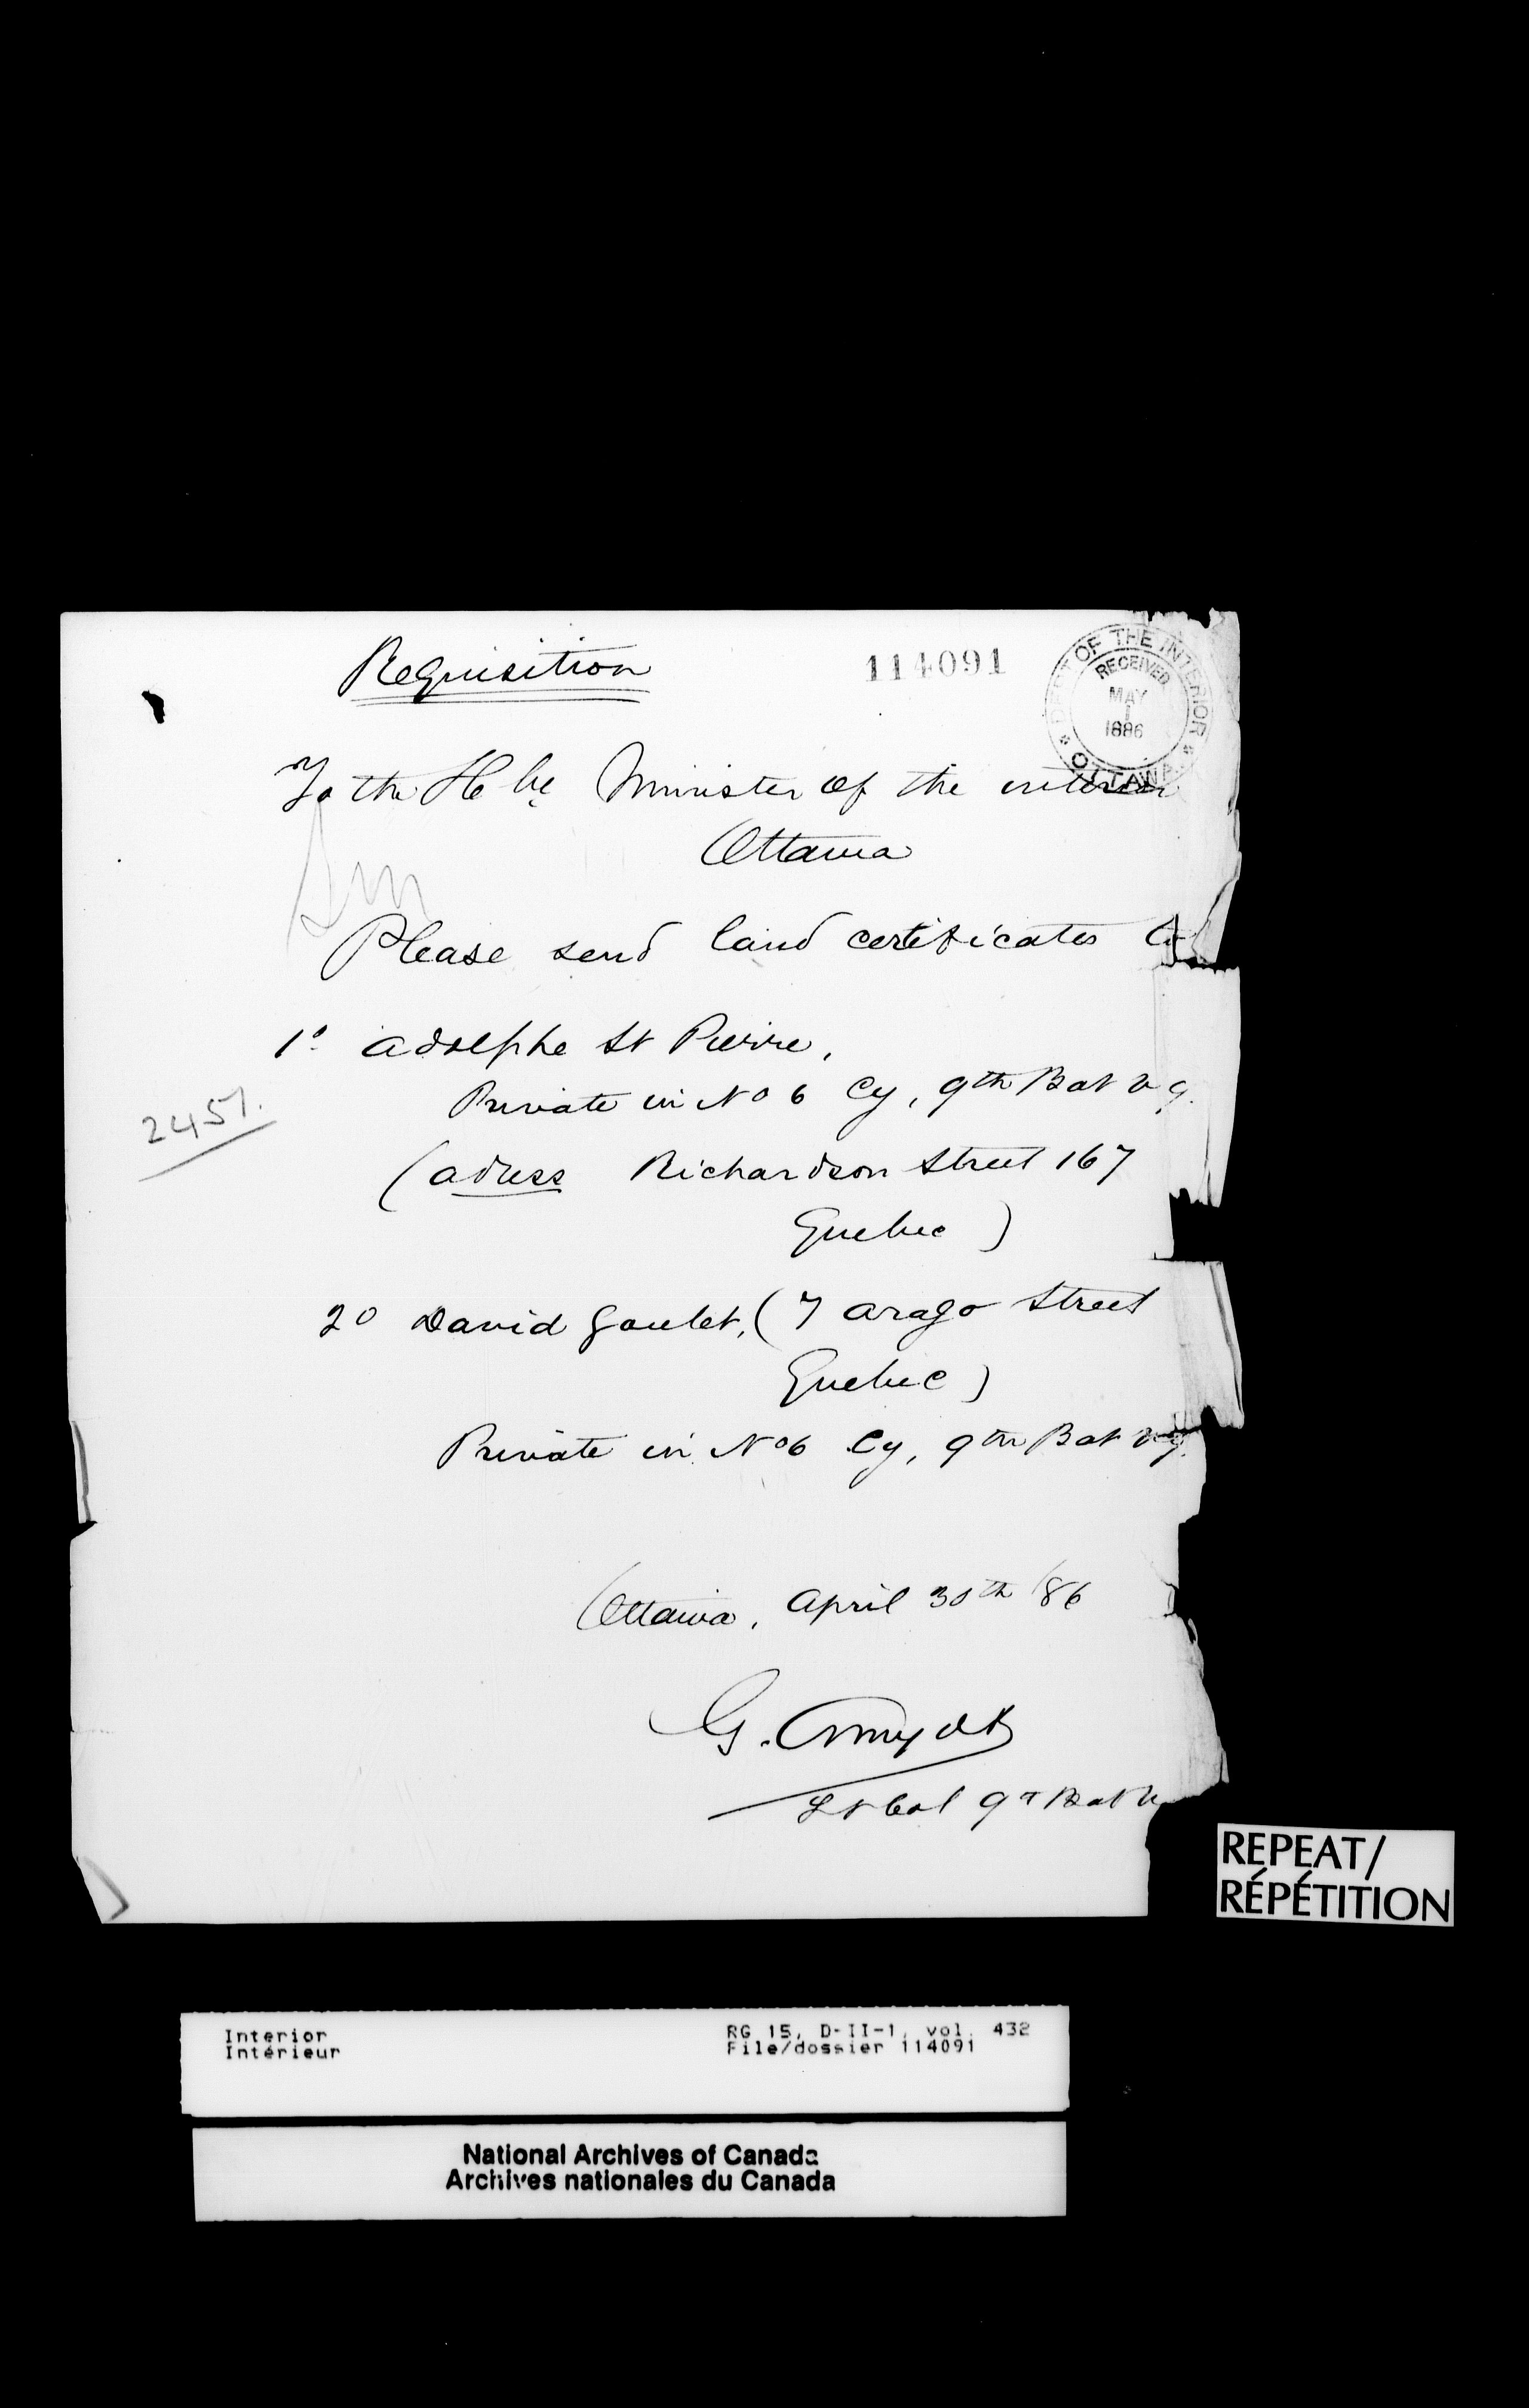 Requisition
114091
DEPT OF THE INTERIOR
RECEIVED
MAY
1
1886
OTTAWA
To the Hble Minister of the interior
Ottawa
Please send land certificates to
1o adolphe St Pierre,
Private in No 6 Cy, 9th Bat V Q.
2451.
(adress Richardson Street 167
Quebec )
2o David Goulet, ( 7 arago Street
Quebec )
Private in No 6 Cy, 9th Bat V Q.
Ottawa, April 30th /86
G. Amyot
Lt Col 9th Bat V
REPEAT/
RÉPÉTITION
Interior
Intérieur
RG 15, D-II-1, vol. 432
File/dossier 114091
National Archives of Canada
Archives nationales du Canada